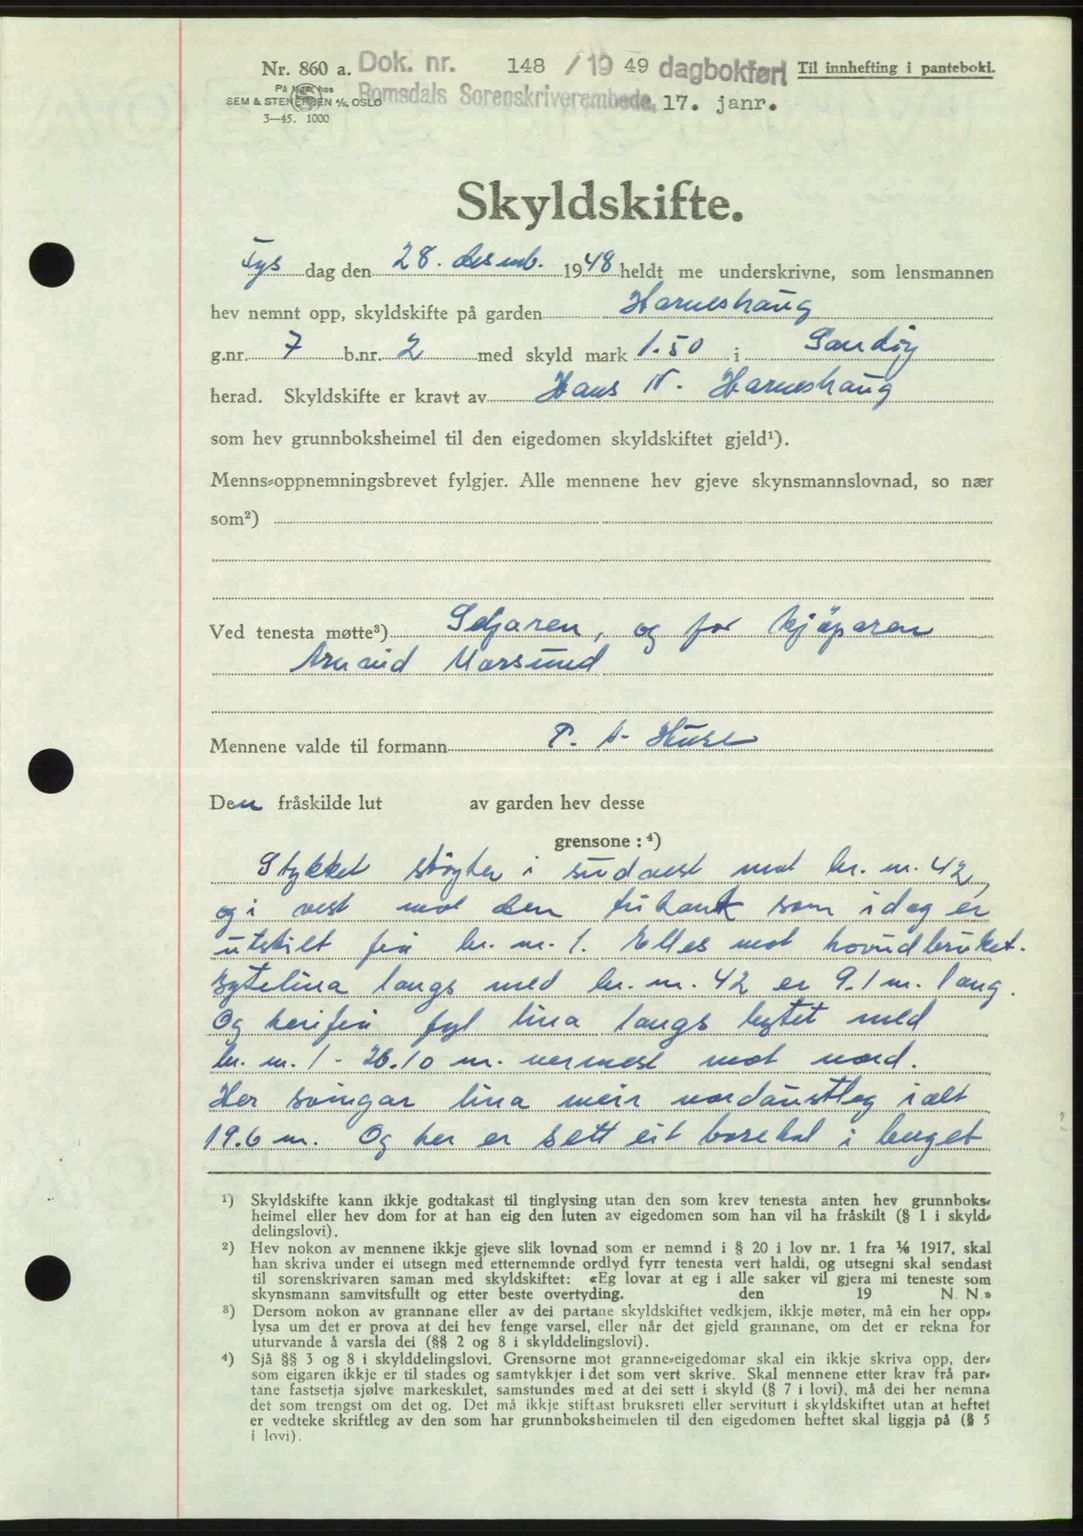 Nr. 860 a. Dok. nr. 148 / 19 49 dagbokført Til innhefting i pantebok.
På lager hos
SEM & STENERSEN A/S, OSLO Romsdals Sorenskriverembede, 17. janr.
3—45. 1000
Skyldskifte.
Tys dag den 28. desemb. 1948 heldt me underskrivne, som lensmannen
hev nemnt opp, skyldskifte på garden Harneshaug
g.nr. 7 b.nr. 2 med skyld mark 1.50 i Sandøy
herad. Skyldskifte er kravt av Hans N. Harneshaug
som hev grunnboksheimel til den eigedomen skyldskiftet gjeld¹).
Menns-oppnemningsbrevet fylgjer. Alle mennene hev gjeve skynsmannslovnad, so nær
som²)
Ved tenesta møtte³) Seljaren, og for kjöparen
Arnvid Morsund
Mennene valde til formann P. A. Huse
Den fråskilde lut av garden hev desse
grensone : ⁴)
Stykket støyter i sudvest mot br. nr. 42,
og i vest mot den som idag er
utskilt frå br. nr. 1. Elles mot hovudbruket.
Bytelina langs med br. nr. 42 er 9.1 m. lang.
Og herifrå fyl lina langs bytet med
br. nr. 1 - 26.10 m. nermest mot nord.
Her svingar lina meir nordaustleg ialt
19.6 m. Og her er sett eit borehol i berget
¹) Skyldskifte kann ikkje godtakast til tinglysing utan den som krev tenesta anten hev grunnboks-
heimel eller hev dom for at han eig den luten av eigedomen som han vil ha fråskilt (§ 1 i skyld-
delingslovi).
²) Hev nokon av mennene ikkje gjeve slik lovnad som er nemnd i § 20 i lov nr. 1 fra 1/6 1917, skal
han skriva under ei utsegn med etternemnde ordlyd fyrr tenesta vert haldi, og utsegni skal sendast
til sorenskrivaren saman med skyldskiftet: «Eg lovar at eg i alle saker vil gjera mi teneste som
skynsmann samvitsfullt og etter beste overtyding. den 19 N. N.»
³) Dersom nokon av grannane eller av dei partane skyldskiftet vedkjem, ikkje møter, må ein her opp-
lysa um det er prova at dei hev fenge varsel, eller når det gjeld grannane, om det er rekna for
uturvande å varsla dei (§§ 2 og 8 i skylddelingslovi).
⁴) Sjå §§ 3 og 8 i skylddelingslovi. Grensorne mot granne-eigedomar skal ein ikkje skriva opp, der-
som eigaren ikkje er til stades og samtykkjer i det som vert skrive. Skal mennene etter krav frå par-
tane fastsetja sjølve markeskilet, samstundes med at dei sett i skyld (§ 7 i lovi), må dei her nemna
det som trengst om det og. Det må ikkje stiftast bruksrett eller servitutt i skyldskiftet utan at heftet
er vedteke skriftleg av den som har grunnboksheimelen til den eigedomen heftet skal liggja på (§ 5
i lovi).